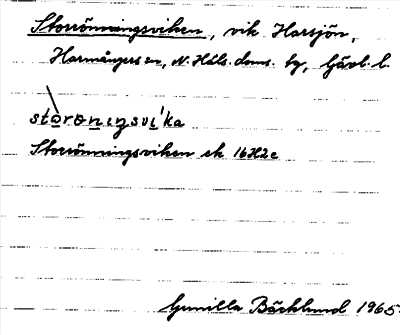 Storrönningsviken, vik Harsjön,
Harmångers sn, N. Häls. doms. tg, Gävl. l.
stòrønıŋsvi'ka
Storrönningsviken ek 16H2c
Gunilla Bäcklund 1965.